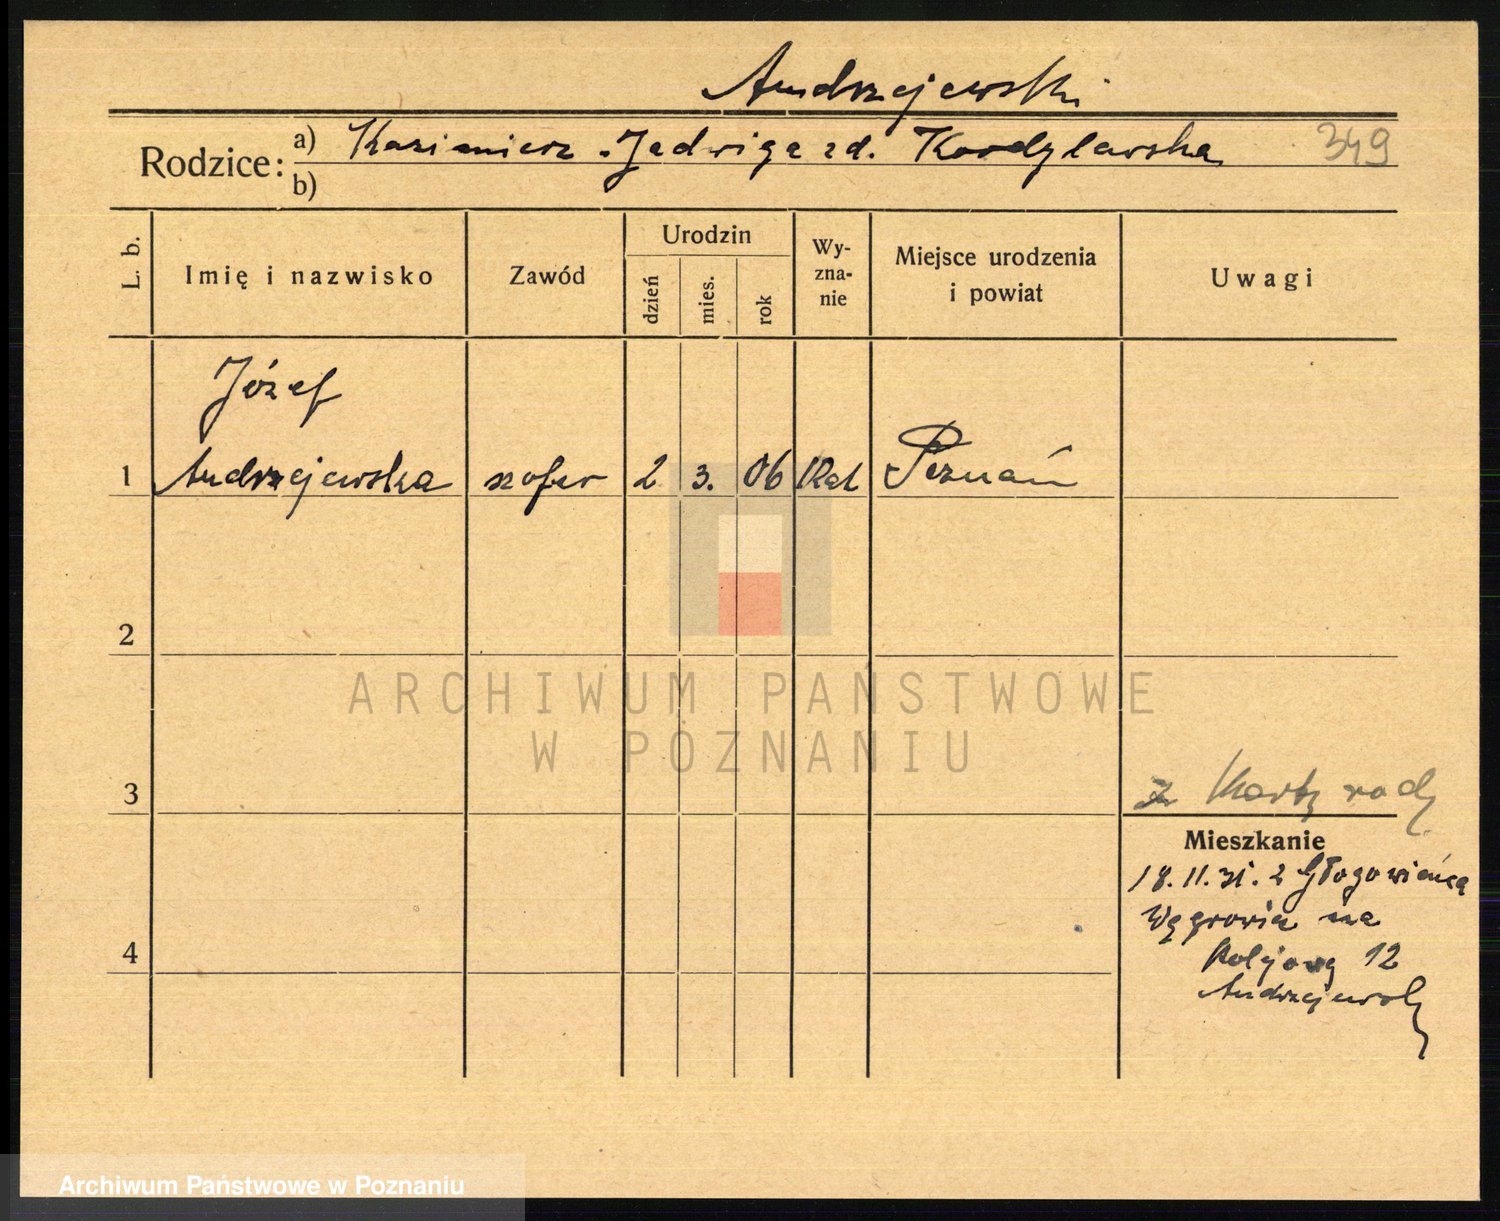 Andrzejewski
Rodzice: a) Kazimierz . Jadwiga zd. Kordylewska 349
b)
L. b. Imię i nazwisko Zawód Urodzin dzień mies. rok Wy-zna-nie Miejsce urodzenia i powiat Uwagi
Józef
1 Andrzejewska szofer 2 3. 06 Kat Poznań
2
ARCHIWUM PAŃSTWOWE
W POZNANIU
3
z Karty rodz
Mieszkanie
18.11.31. z Głogowieńca
Wągrowiec na
4
Kolejową 12
Andrzejewski
Archiwum Państwowe w Poznaniu